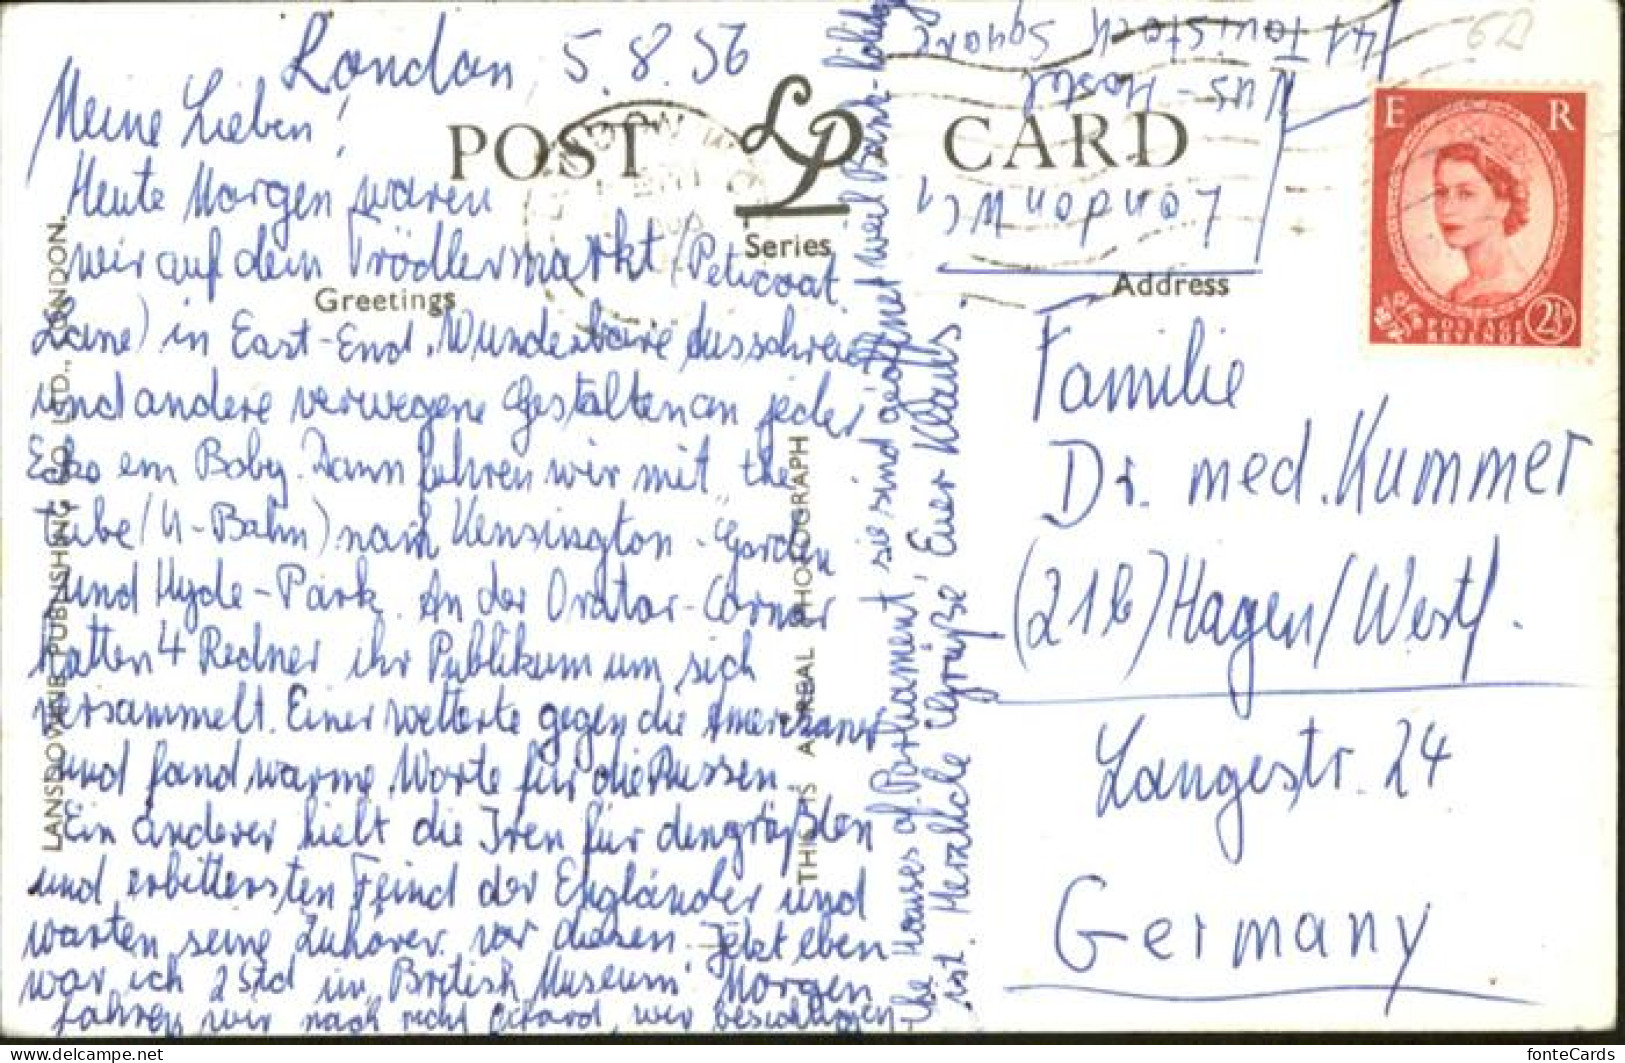 London 5.8.56
Meine Lieben!
Heute Morgen waren
wir auf dem Trödlermarkt (Peticoat
Lane) in East-End. Wunderbare Ausschreier
und andere verwegene Gestalten an jeder
Ecke ein Boby. Dann fahren wir mit "the
tube (U-Bahn) nach Kensington-Garden
und Hyde-Park. An der Orator-Corner
hatten 4 Redner ihr Publikum um sich
versammelt. Einer wetterte gegen die Amerikaner
und fand warme Worte für die Russen.
Ein anderer hielt die Iren für den größten
und erbittersten Feind der Engländer und
warnte seine Zuhörer vor diesen. Jetzt eben
war ich 2 Std im British Museum. Morgen
fahren wir nach wir besichtigen
the Houses of Parliament, sie sind geöffnet weil Bank-holiday
ist. Herzliche Grüße Euer Klaus.
POST CARD
LP
Series
Greetings
Address
LANSDOWNE PUBLISHING CO. LTD., LONDON.
THIS IS A REAL PHOTOGRAPH
Hostel
Tavistock Square
London WC1
E R
POSTAGE
REVENUE
2½D
Familie
Dr. med. Kummer
(21b) Hagen/Westf.
Langestr. 24
Germany
fonteCards
delcampe.net